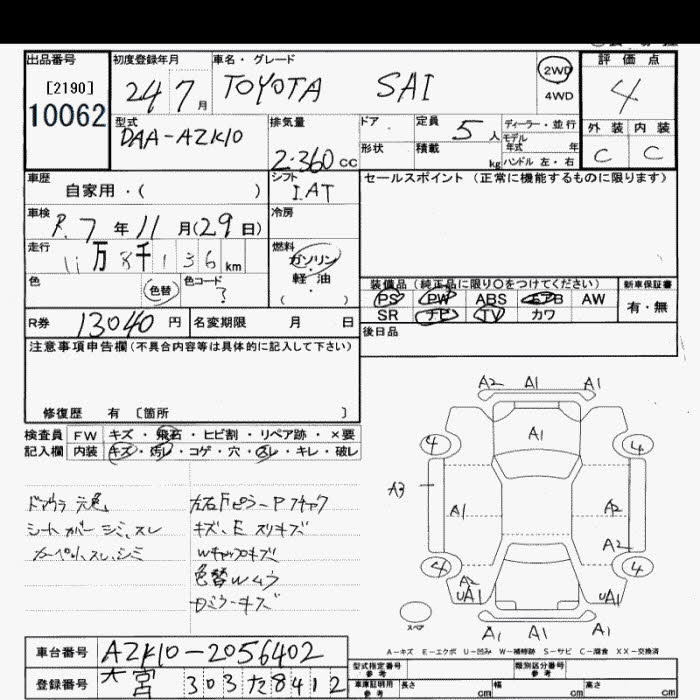 出品番号
[2190]
10062
初度登録年月
24 7 月
車名・グレード
TOYOTA SAI
2WD
4WD
評価点
4
外装 内装
C C
型式
DAA-AZK10
排気量
2.360 cc
ドア
形状
定員
5 人
積載
kg
ディーラー・並行
モデル年式 年
ハンドル 左・右
車歴
自家用・( )
シフト
I.AT
セールスポイント (正常に機能するものに限ります)
車検
R.7 年 11 月(29 日)
冷房
走行
11 万 8 千 1 3 6 km
燃料
ガソリン
軽・油
( ・ )
色
色替
色コード
?
装備品 (純正品に限り○をつけてください)
PS PW ABS エアB AW
SR ナビ TV カワ
新車保証書
有・無
R券 13040 円
名変期限 月 日
後日品
注意事項申告欄(不具合内容等は具体的に記入して下さい)
修復歴 有 〔箇所 〕
検査員 FW キズ・飛石・ヒビ割・リペア跡・×要
記入欄 内装 キズ・汚レ・コゲ・穴・スレ・キレ・破レ
ドアウラ元色
シートカバー シミ、スレ
カーペット、スレ、シミ
キズ、E スリキズ
色替Wムラ
A2 A1 A1
4 A1 4
A3 A1 A2
A2
4 4
A2
UA1 UA1
A1 A1 A1
スペア
A-キズ E-エクボ U-凹み W-補修跡 S-サビ C-腐食 XX-交換済
車台番号 AZK10-2056402
登録番号 大宮 303 た 8412
型式指定番号
参考
類別区分番号
参考
車庫証明用
参考
長さ cm
幅 cm
高さ cm